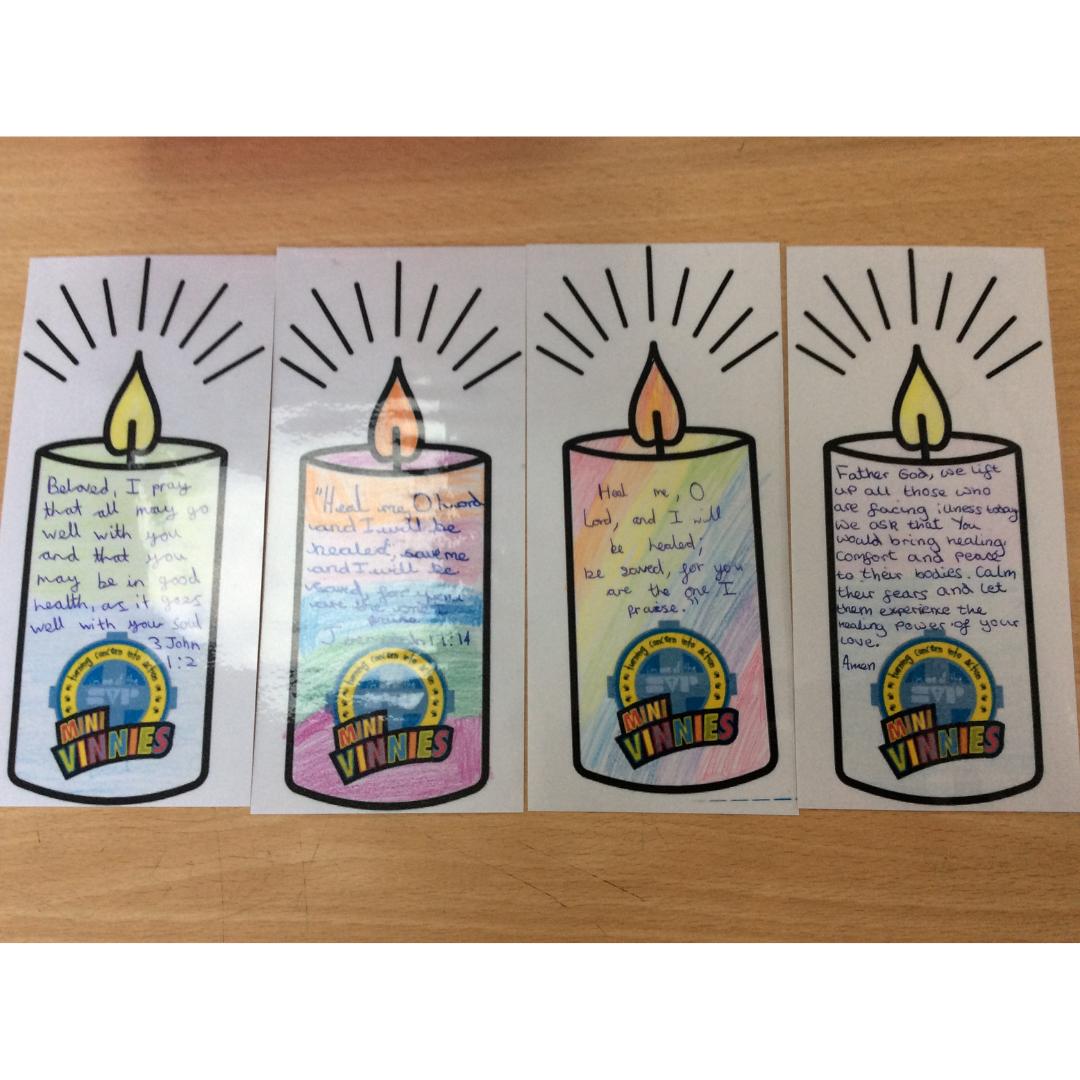 Beloved, I pray
that all may go
well with you
and that you
may be in good
health, as it goes
well with your soul
3 John
1:2
turning concern into action
SVP
MINI
VINNIES
"Heal me, O
and I will be
healed; save me
and I will be
saved, for you
are the one I
praise."
14
turning concern into action
SVP
MINI
VINNIES
Heal me, O
Lord, and I will
be healed;
be saved, for you
are the one I
praise."
turning concern into action
SVP
MINI
VINNIES
Father God, we lift
up all those who
are facing illness today
We ask that You
would bring healing
comfort and peace
to their bodies. Calm
their fears and let
them experience the
healing power of your
love.
Amen
turning concern into action
SVP
MINI
VINNIES